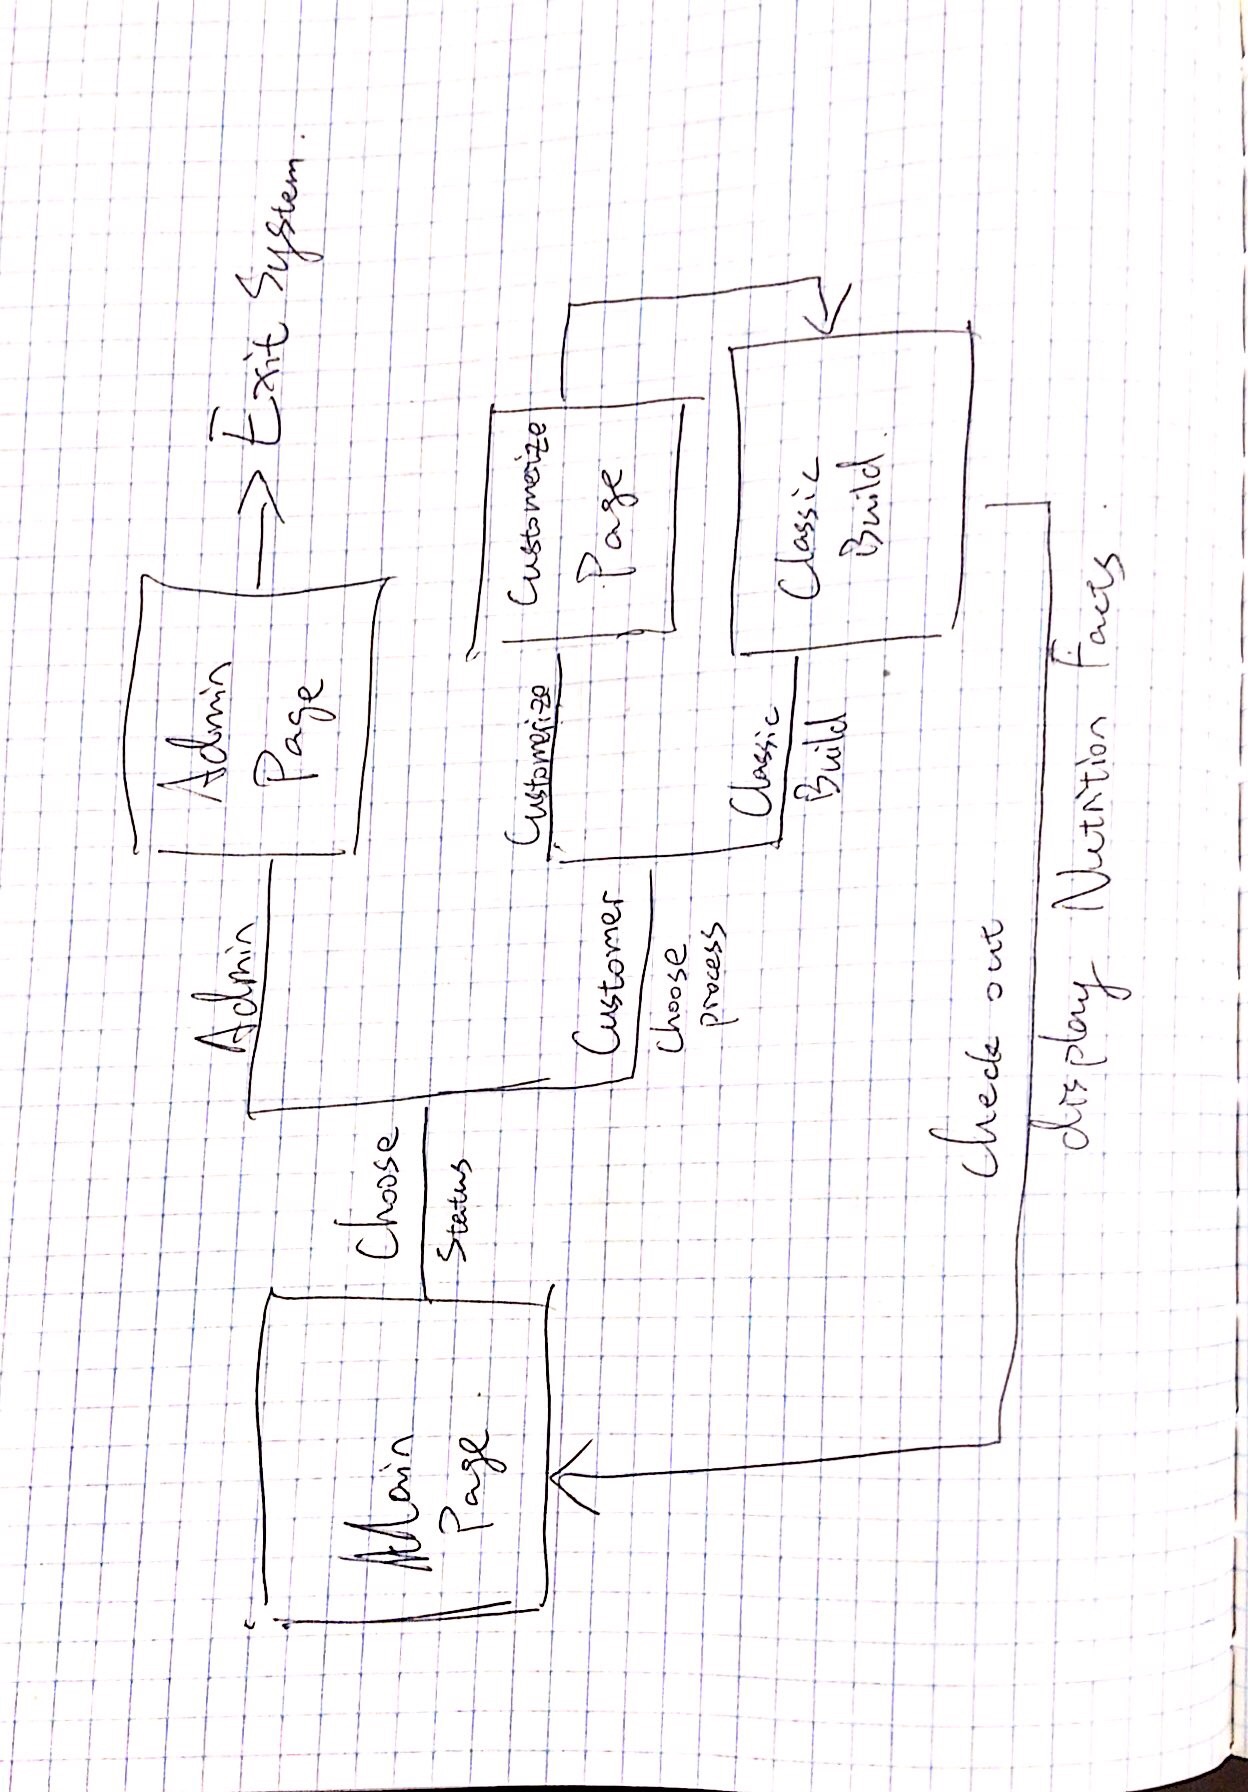 Main
Page.
Choose
Status
Admin
Admin
Page
Exit System.
Customer
Choose
process
Customerize
Customerize
Page
Classic
Build
Classic
Build.
Check out
display Nutrition Facts.